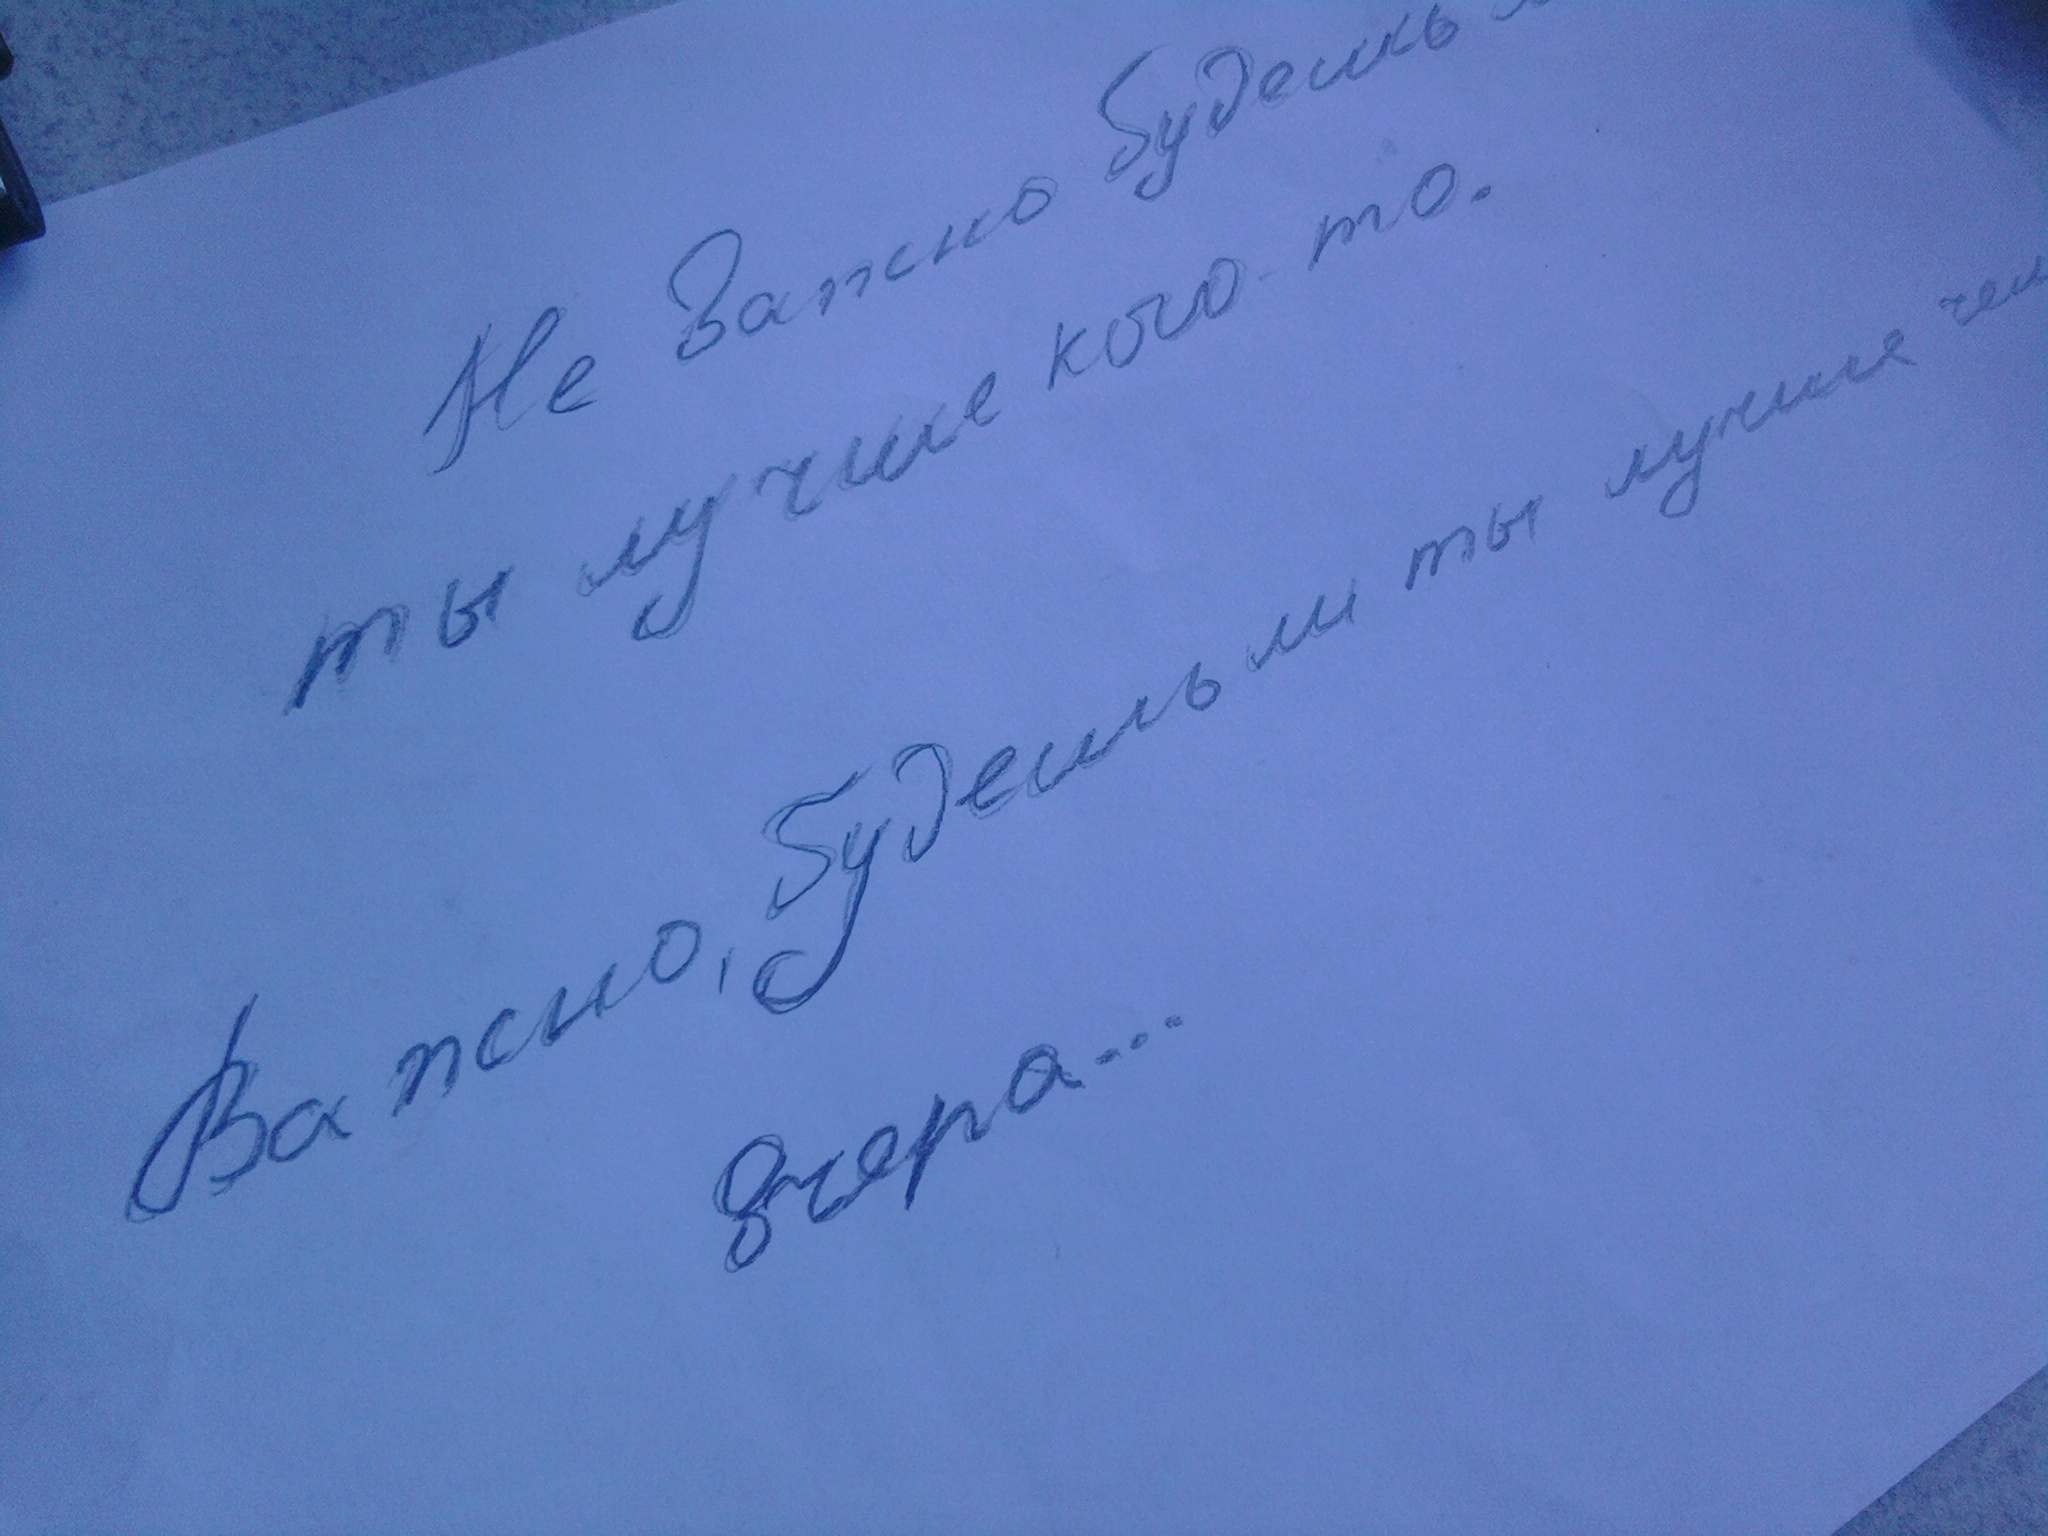 Не важно будешь
ты лучше кого-то.
Важно, будешь ли ты лучше чем
вчера...